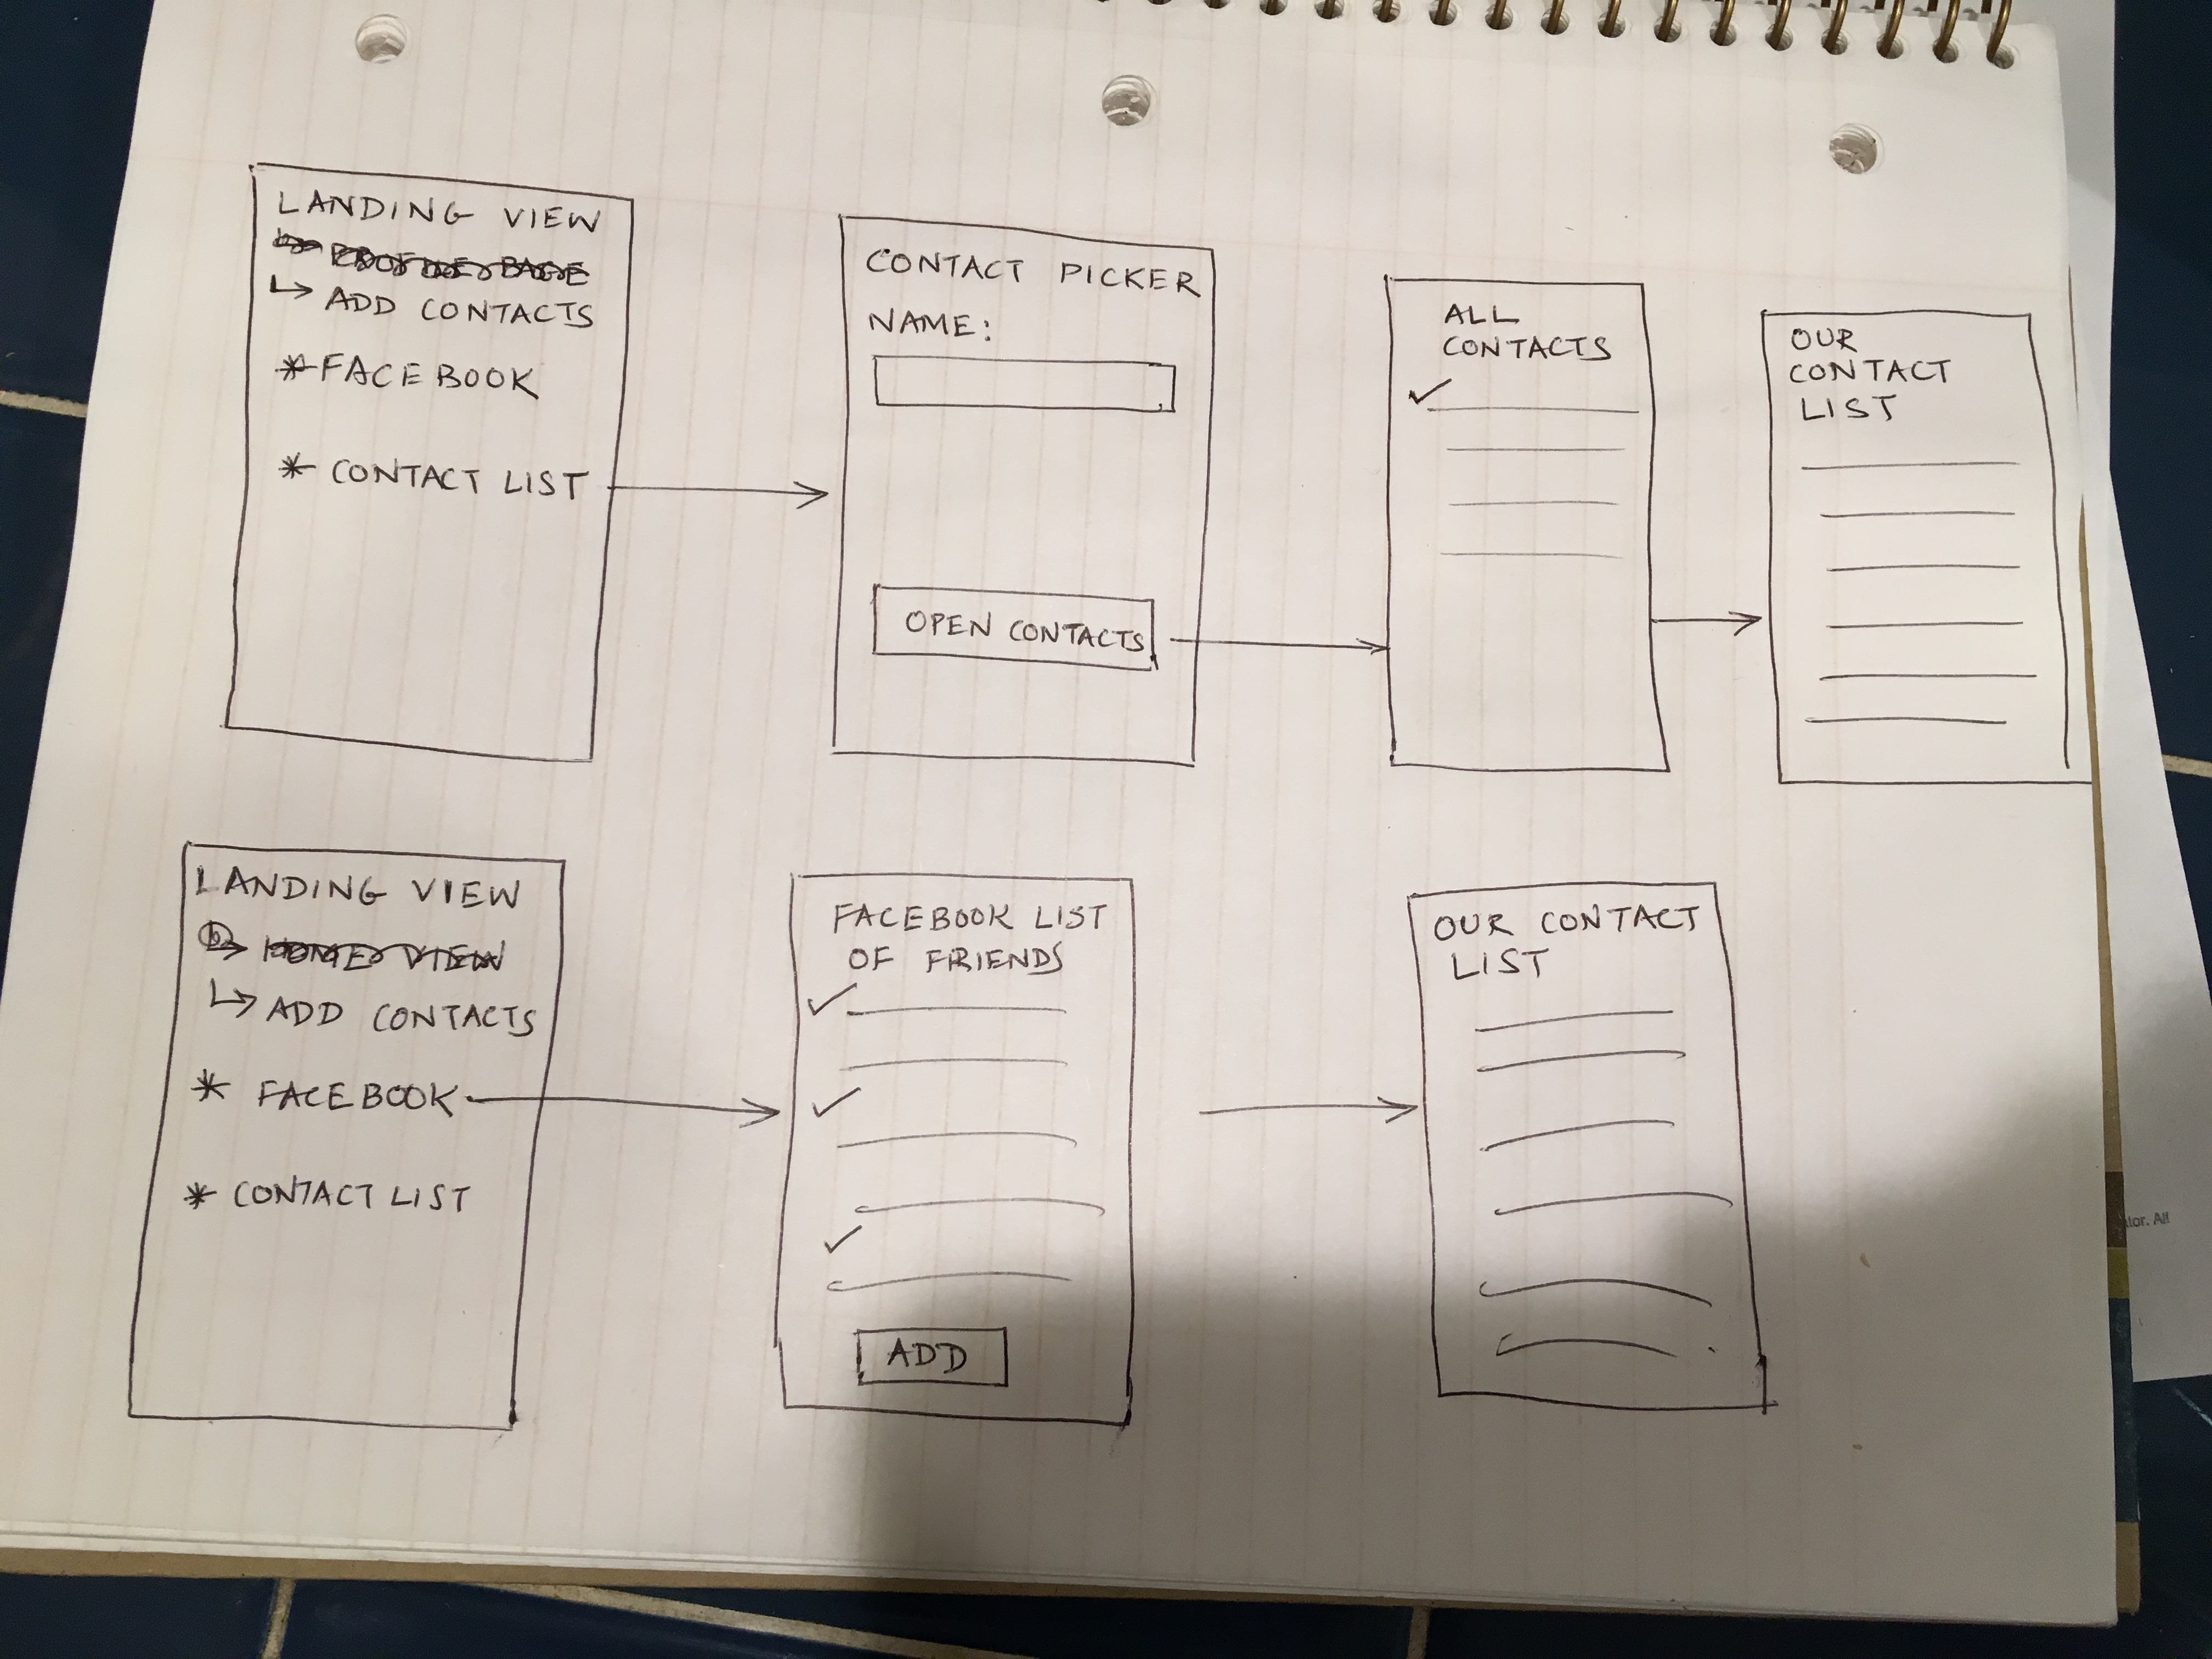 LANDING VIEW
↳ ADD CONTACTS
* FACEBOOK
* CONTACT LIST
CONTACT PICKER
NAME:
OPEN CONTACTS
ALL
CONTACTS
OUR
CONTACT
LIST
LANDING VIEW
↳ ADD CONTACTS
* FACEBOOK
* CONTACT LIST
FACEBOOK LIST
OF FRIENDS
ADD
OUR CONTACT
LIST
ator. All